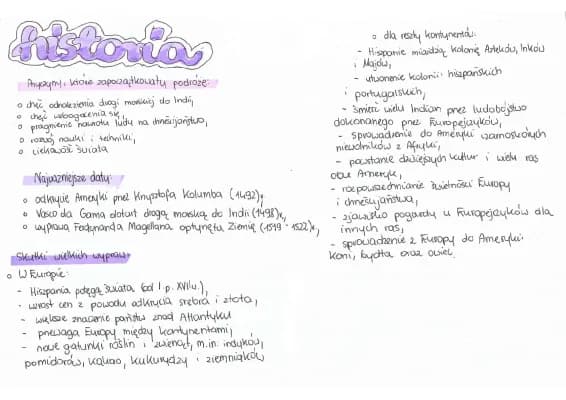 historia
Przyczyny, które zapoczątkowały podróże:
o chęć odnalezienia drogi morskiej do Indii,
o chęć wzbogacenia się,
o pragnienie nawrotu ludy na chrześcijaństwo,
o rozwój nauki i techniki,
o ciekawość świata
Najważniejsze daty:
o odkrycie Ameryki przez Krzysztofa Kolumba (1492)r,
o Vasco da Gama dotarł drogą morską do Indii (1498)r,
o wyprawa Ferdynanda Magellana opłynęła Ziemię (1519 - 1522)r,
Skutki wielkich wypraw:
o W Europie:
- Hiszpania potęgą świata (od I p. XVIw.),
- wzrost cen z powodu odkrycia srebra i złota,
- większe znaczenie państw znad Atlantyku
- przewaga Europy między kontynentami,
- nowe gatunki roślin i zwierząt, m.in. indyków,
pomidorów, kakao, kukurydzy i ziemniaków
o dla reszty kontynentów:
- Hiszpanie miażdżą kolonię Azteków, Inków
i Majów,
- utworzenie kolonii hiszpańskich
i portugalskich,
- śmierć wielu Indian przez ludobójstwo
dokonanego przez Europejczyków,
- sprowadzenie do Ameryki czarnoskórych
niewolników z Afryki,
- powstanie dzisiejszych kultur i wielu ras
obu Ameryk,
- rozpowszechnianie świetności Europy
i chrześcijaństwa,
- zjawisko pogardy u Europejczyków dla
innych ras,
- sprowadzenie z Europy do Ameryki:
koni, bydła oraz owiec.